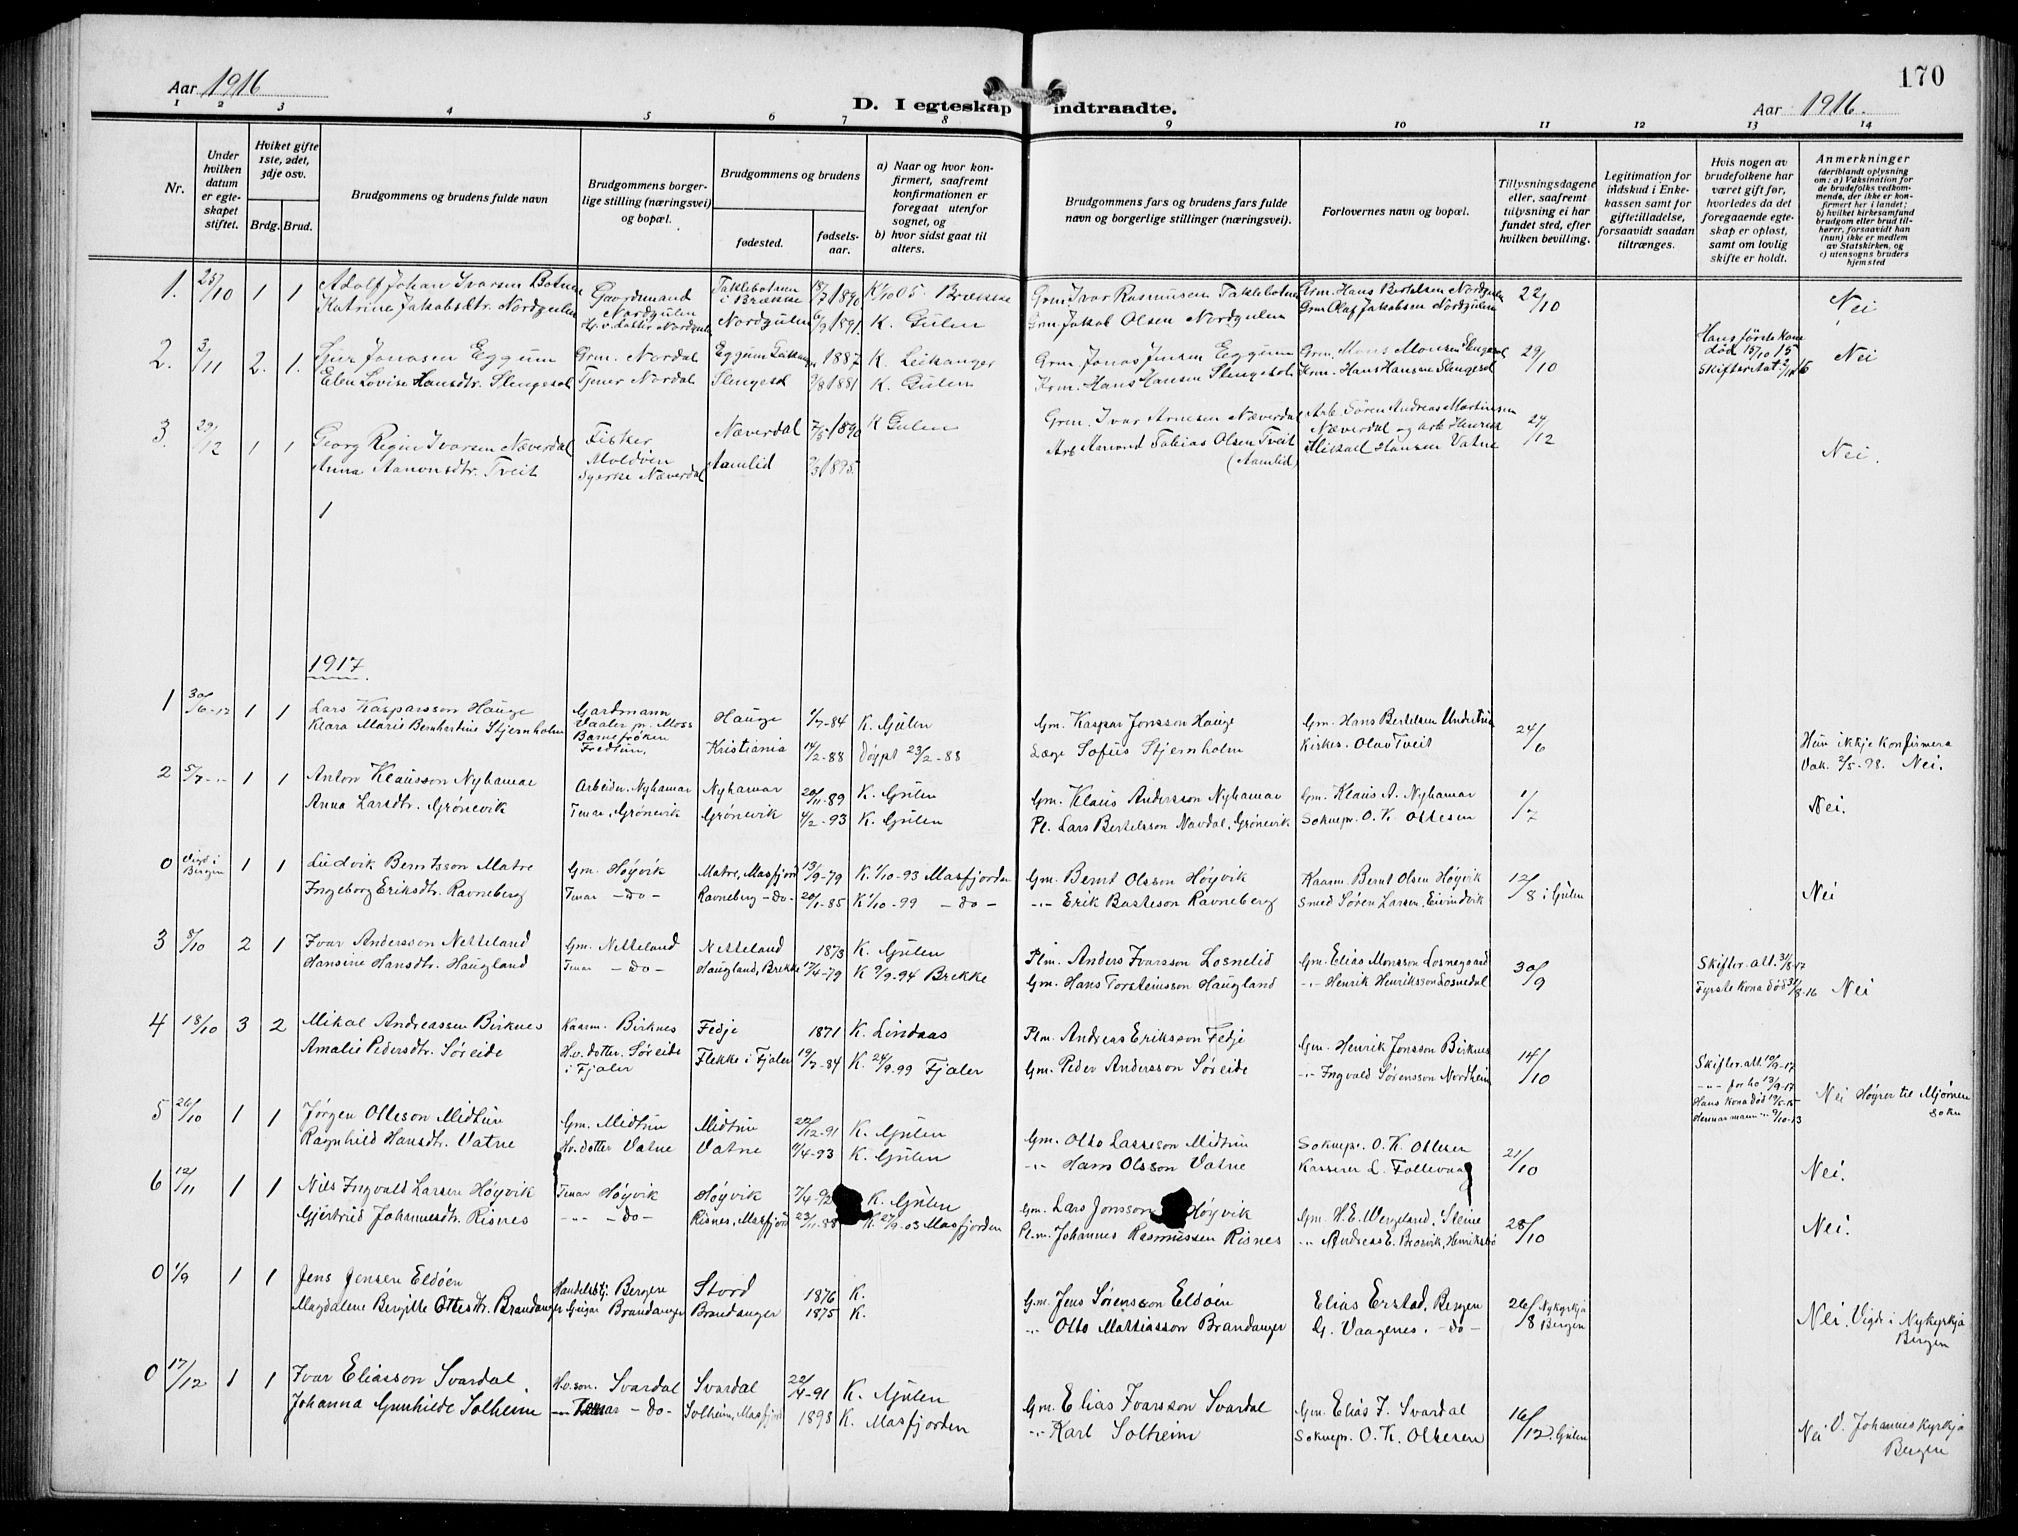 170
Aar 1916
D. I egteskap indtraadte.
Aar 1916.
1 2 3 4 5 6 7 8 9 10 11 12 13 14
Nr.
Under hvilken datum er egteskapet stiftet.
Hviket gifte 1ste, 2det, 3dje osv.
Brdg. Brud.
Brudgommens og brudens fulde navn
Brudgommens borgerlige stilling (næringsvei) og bopæl.
Brudgommens og brudens
fødested.
fødselsaar.
a) Naar og hvor konfirmert, saafremt konfirmationen er foregaat utenfor sognet, og
b) hvor sidst gaat til alters.
Brudgommens fars og brudens fars fulde navn og borgerlige stillinger (næringsvei).
Forlovernes navn og bopæl.
Tillysningsdagene eller, saafremt tilysning ei har fundet sted, efter hvilken bevilling.
Legitimation for indskud i Enkekassen samt for giftetilladelse, forsaavidt saadan tiltrænges.
Hvis nogen av brudefolkene har været gift før, hvorledes da det foregaaende egteskap er opløst, samt om lovlig skifte er holdt.
Anmerkninger (deriblandt oplysning om: a) Vaksination for de brudefolks vedkommende, der ikke er konfirmert her i landet; b) hvilket kirkesamfund brudgom eller brud tilhører, forsaavidt han (hun) ikke er medlem av Statskirken, og c) utensogns bruders hjemsted
1. 25/10 1 1 Adolf Johan Ivarsen Botnen Gaardmand Nordgulen Taklebotnen i Brekke 18/7 1890 K 1/10 05 Brekke Grm. Ivar Rasmusen Taklebotn Grm. Hans Bertelsen Nordgulen 22/10 Nei
Katrine Jakobsdtr. Nordgulen H.v. datter Nordgulen Nordgulen 6/9 1891. K. Gulen Grm Jakob Olsen Nordgulen Grm Olaf Jakobsen Nordgulen
2. 3/11 2. 1. Sjur Jonasen Eggum Grm. Nordal Eggum Leikanger 1887 K. Leikanger Grm Jonas Jensen Eggum Grm. Mons Monsen Slengesol 29/10 Hans første kone død 15/10 15 Nei
Elen Lovise Hansdtr. Slengesol Tjener Nordal Slengesol 9/8 1881 K. Gulen Krm. Hans Hansen Slengesol Krm. Hans Hansen Slengesol Skifteratt. 2/11 16
3. 29/12 1 1 Georg Regin Ivarsen Næverdal Fisker Moldøen Næverdal 7/5 1890 K Gulen Grm. Ivar Arnesen Næverdal Arb. Søren Andreas Martinsen Næverdal og arb Henrik 27/12
Anna Aamondsdtr. Tveit Syerske Næverdal Aamlid 9/3 1895. Arb Aamond Tobias Olsen Tveit (Aamlid) Mikael Hansen Vatne Nei.
1
1917.
1 30/6-17 1 1 Lars Kasparsson Hauge Gardmann Vaaler pr. Moss Hauge 1/7-84 K. Gulen Gm. Kaspar Jonsson Hauge Gm. Hans Bertelsen Undertun 24/6
Klara Marie Bernhartine Stjernholm Barnefrøken Fredtun. Kristiania 14/2-88 Døypt 23/2-88 Læge Sofus Stjernholm Kirkes. Olav Tveit Hun ikkje konfirmera Vak. 2/5-98. Nei.
2 5/7 1 1 Anton Klausson Nyhamar Arbeider, Nyhamar Nyhamar 20/11-89 K. Gulen Gm. Klaus Andersson Nyhamar Gm. Klaus A. Nyhamar 1/7 Nei.
Anna Larsdtr. Grønevik Tenar, Grønevik Grønevik 4/2-93 K. Gulen Pl. Lars Bertelsson Navdal, Grønevik Soknepr. O. K. Ottesen
0 Vigd i Bergen 1 1 Ludvik Berntsson Matre Gm. Høyvik Matre, Masfjord 13/9-79 K. 1/10-93 Masfjorden Gm. Bernt Olsson Høyvik Kaarm Bernt Olsen Høyvik 12/8 i Gulen Nei
Ingeborg Eriksdtr. Ravneberg Tenar -do- Ravneberg -do- 20/1-85 K 1/10-99 -do- -"- Erik Basteson Ravneberg Smed Søren Larsen, Eivindvik
3 8/10 2 1 Ivar Andersson Netteland Gm. Netteland Netteland 1873 K. Gulen Plm. Anders Ivarsson Losnelid Gm. Elias Monsson Losnegaard 30/9 Skifter. att. 31/8-17
Hansine Hansdtr. Haugland Tenar -do- Haugland, Brekke 17/4-79 K 9/9-94 Brekke Gm. Hans Torsteinsson Haugland -"- Henrik Henriksson Losnedal Fyrste kona død 31/8-16 Nei
4 18/10 3 2 Mikal Andreassen Birknes Kaarm. Birknes Fedje 1871 K. Lindaas Plm. Andreas Eriksson Fedje Gm. Henrik Jonsson Birknes 14/10 Skifter. att. 10/9-17 -"- for ho 13/9-17
Amalie Pedersdtr. Søreide H.v. dotter. Søreide i Fjaler Flekke i Fjaler 19/7-84 K. 24/9-99 Fjaler Gm. Peder Andersson Søreide -"- Ingvald Sørensson Nordheim Hans kona død 19/5-15 Hennar mann -"- 9/10-13 Nei Høyrer til Mjørnen sokn
5 26/10 1 1 Jørgen Otteson Midtun Gm. Midtun Midtun 22/12-91 K. Gulen Gm. Otto Lasseson Midtun Soknepr. O. K. Ottesen 21/10
Ragnhild Hansdtr. Vatne Hv. dotter Vatne Vatne 11/4-93 K. Gulen -"- Hans Olsson Vatne Kasserer L. Follevaag Nei.
6 12/11 1 1 Nils Ingvald Larsen Høyvik Tenar Høyvik Høyvik 7/4-92 K. Gulen Gm. Lars Jonsson Høyvik Gm. H. E. Wergeland, Steine 28/10 Nei.
Gjertrud Johannesdtr. Risnes -"- -do- Risnes, Masfjord 23/11-88 K. 27/9-03 Masfjorden Pl.m. Johannes Rasmussen Risnes -"- Andreas E. Brosvik, Henriksbø
0 1/9 1 1 Jens Jensen Eldøen Handelsbtj. Bergen Stord 1876 K. Gm. Jens Sørensson Eldøin Elias Erstad, Bergen 26/8 Nykyrkja Bergen
Magdalene Bergitte Ottesdtr. Brandanger Geigar Brandanger Brandanger 1875 K. -"- Otto Mattiasson Brandanger G. Vaagenes. -do- Nei. Vigde i Nykyrkja Bergen
0 17/12 1 1 Ivar Eliasson Svardal H.v. son. Svardal Svardal 22/4-91 K. Gulen Gm. Elias Ivarsson Svardal Gm. Elias I. Svardal 16/12. Gulen
Johanna Gunhilde Solheim -"- Tenar -do- Solheim, Masfjord 1898 K. Masfjorden -"- Karl Solheim Soknepr. O. K. Ottesen Nei V. Johanneskyrkja Bergen